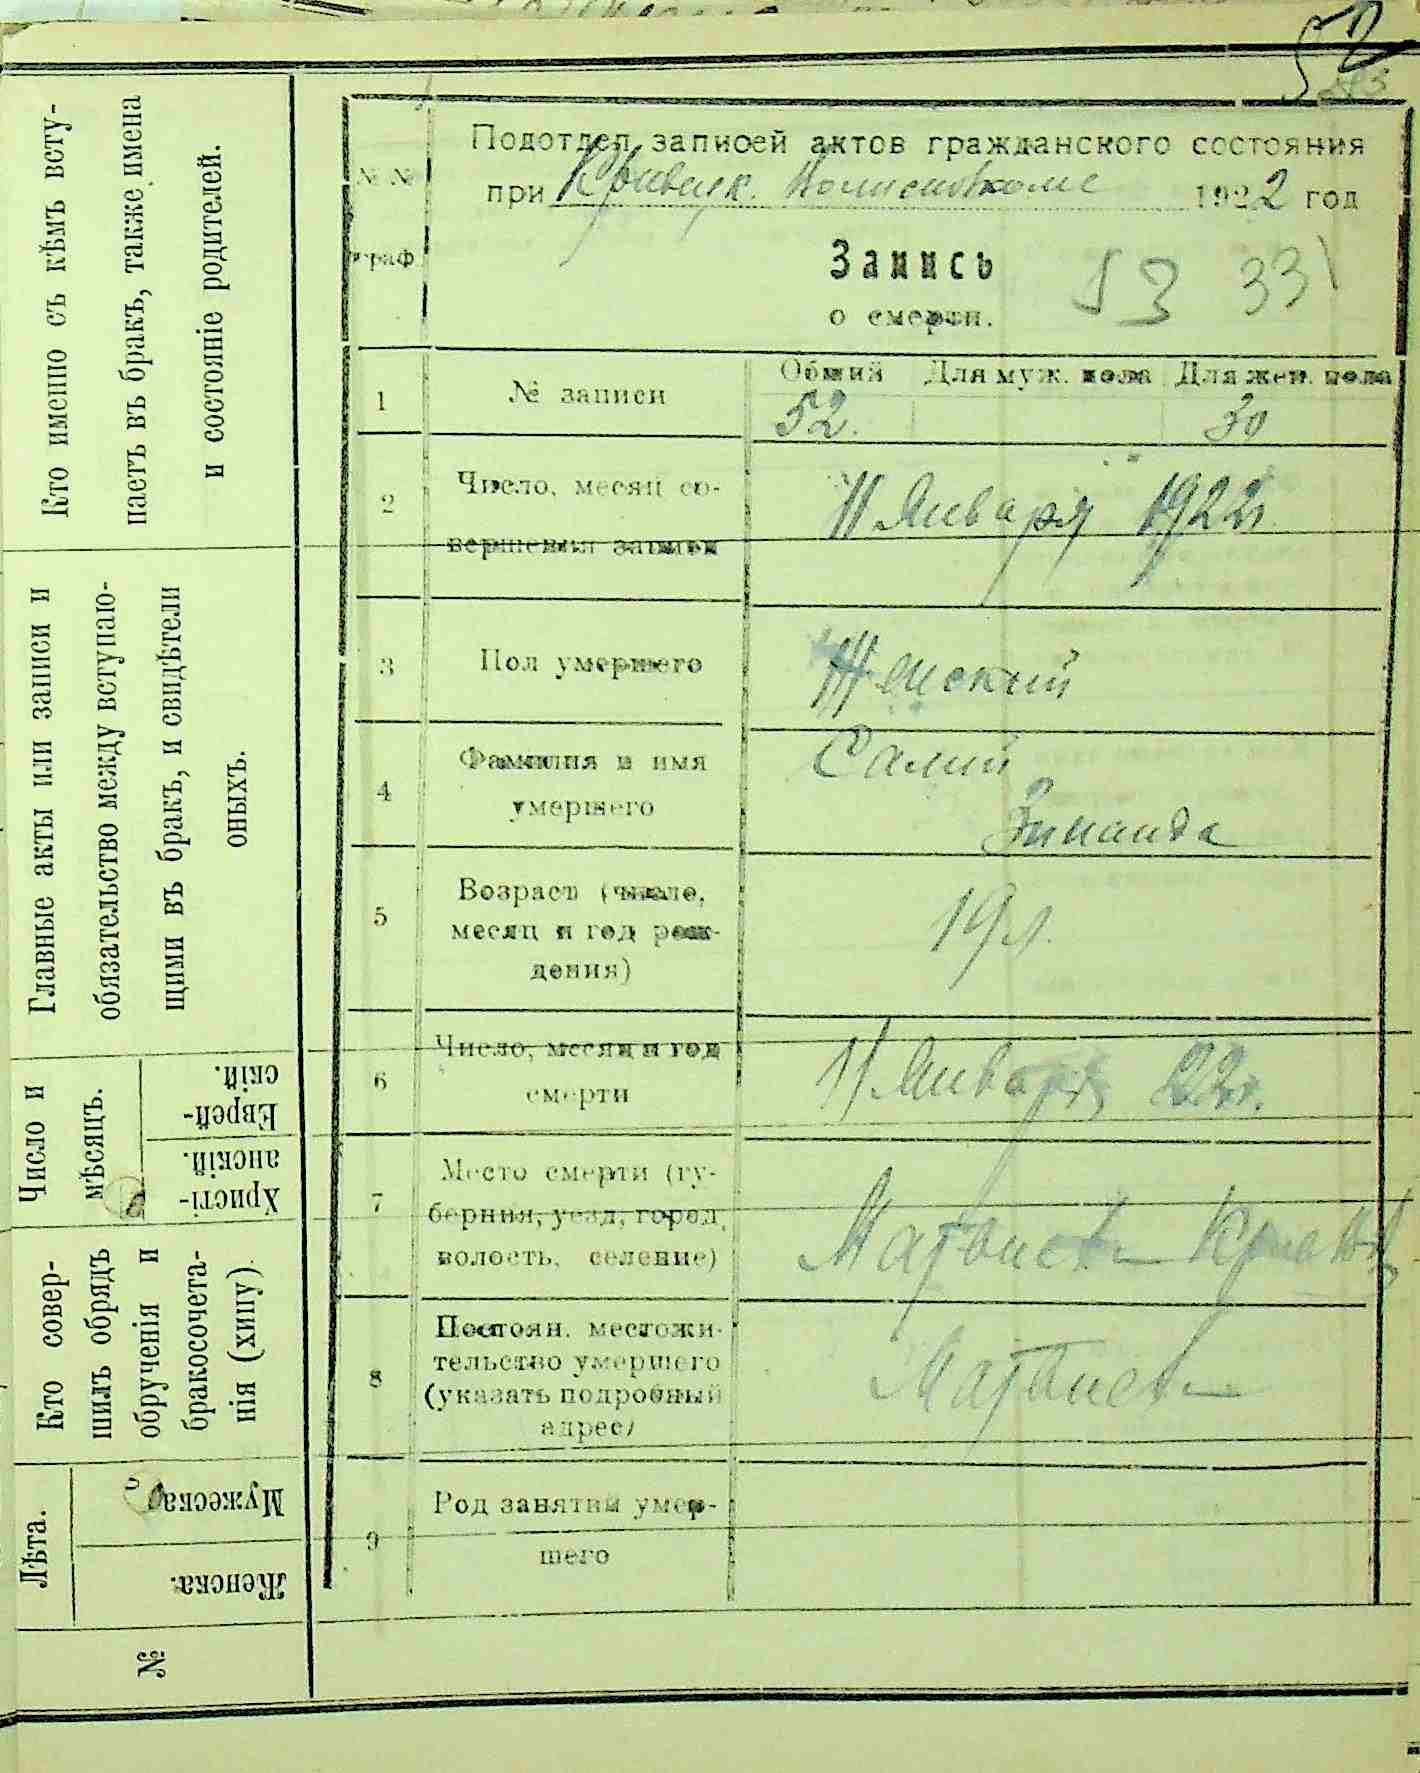 52
Кто именно съ кѣмъ всту-
паетъ въ бракъ, также имена
и состояніе родителей.
Главные акты или записи и
обязательство между вступаю-
щими въ бракъ, и свидѣтели
оныхъ.
Число и
мѣсяцъ.
Еврей-
скій.
Христі-
анскій.
Кто совер-
шилъ обрядъ
обрученія и
бракосочета-
нія (хипу).
Лѣта.
Мужеска.
Женска.
№
№ №
граф
Подотдел записей актов гражданского состояния
при 1922 год
Запись
о смерти.
53 331
1
№ записи
Общий Для муж. пола Для жен. пола
52. 30
2
Число, месяц со-
вершения записи
11 Января 1922г.
3
Пол умершего
Женский
4
Фамилия и имя
умершего
Салий
Зинаида
5
Возраст (число,
месяц и год рож-
дения)
19 л.
6
Число, месяц и год
смерти
11 Января 22г.
7
Место смерти (гу-
берния, уезд, город,
волость, селение)
8
Постоян. местожи-
тельство умершего
(указать подробный
адрес)
9
Род занятий умер-
шего